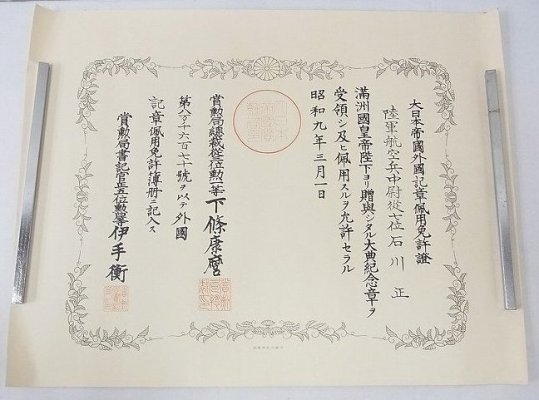 大日本帝國外國記章佩用免許證
陸軍航空兵中尉從七位石川正
滿洲國皇帝陛下ヨリ贈與シタル大典紀念章ヲ
受領シ及ヒ佩用スルヲ允許セラル
昭和九年三月一日
賞勲局總裁從位勲一等下條康麿
第八万千六百七十號ヲ以テ外國
記章佩用免許簿册ニ記入ス
賞勲局書記官正五位勲等伊手衡